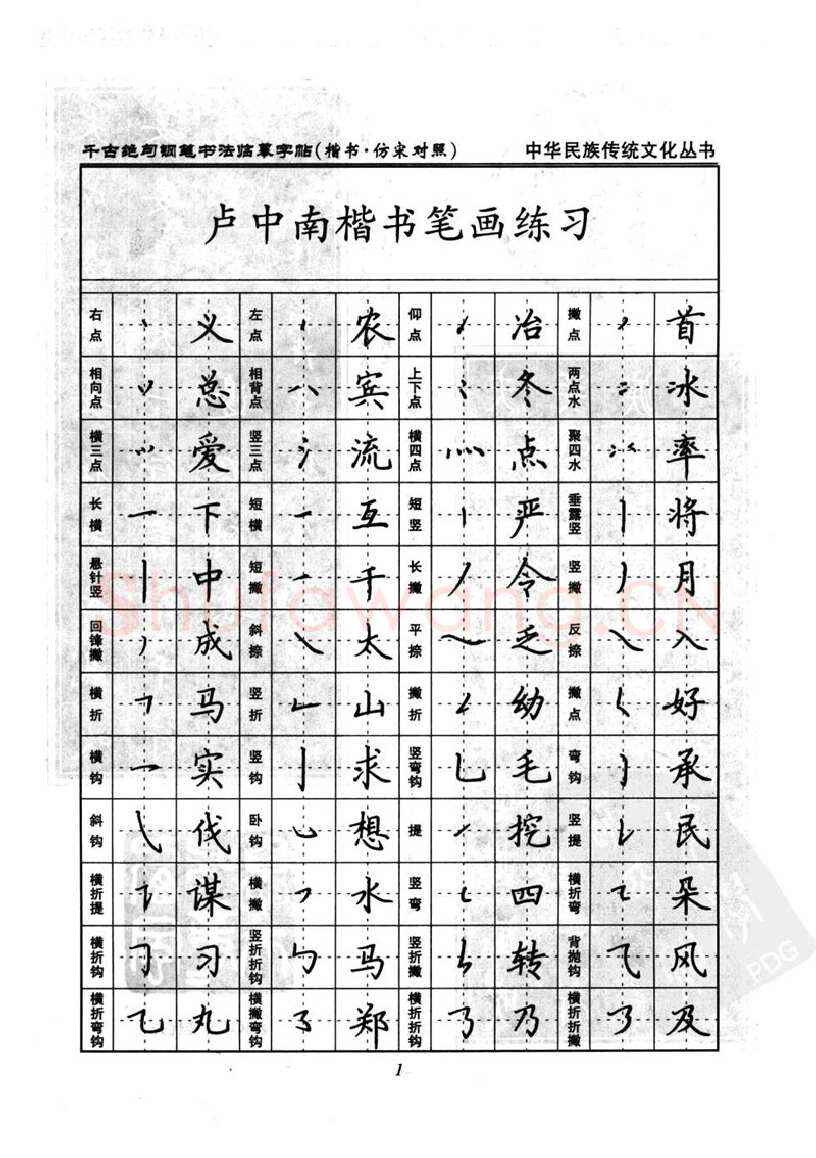 千古绝句钢笔书法临摹字帖(楷书·仿宋对照) 中华民族传统文化丛书
卢中南楷书笔画练习
右点 丶 义 左点 丶 农 仰点 冶 撇点 首
相向点 丷 总 相背点 八 宾 上下点 冬 两点水 冰
横三点 爱 竖三点 流 横四点 灬 点 聚四水 率
长横 一 下 短横 一 互 短竖 丨 严 垂露竖 丨 将
悬针竖 丨 中 短撇 千 长撇 丿 令 竖撇 丿 月
回锋撇 丿 成 斜捺 ㇏ 太 平捺 乏 反捺 入
横折 马 竖折 山 撇折 幼 撇点 好
横钩 实 竖钩 亅 求 竖弯钩 乚 毛 弯钩 承
斜钩 伐 卧钩 想 提 挖 竖提 民
横折提 谋 横撇 水 竖弯 四 横折弯 朵
横折钩 习 竖折折钩 马 竖折撇 转 背抛钩 风
横折弯钩 乙 丸 横撇弯钩 郑 横折折钩 乃 横折折撇 及
1
Shufawang.CN
PDG